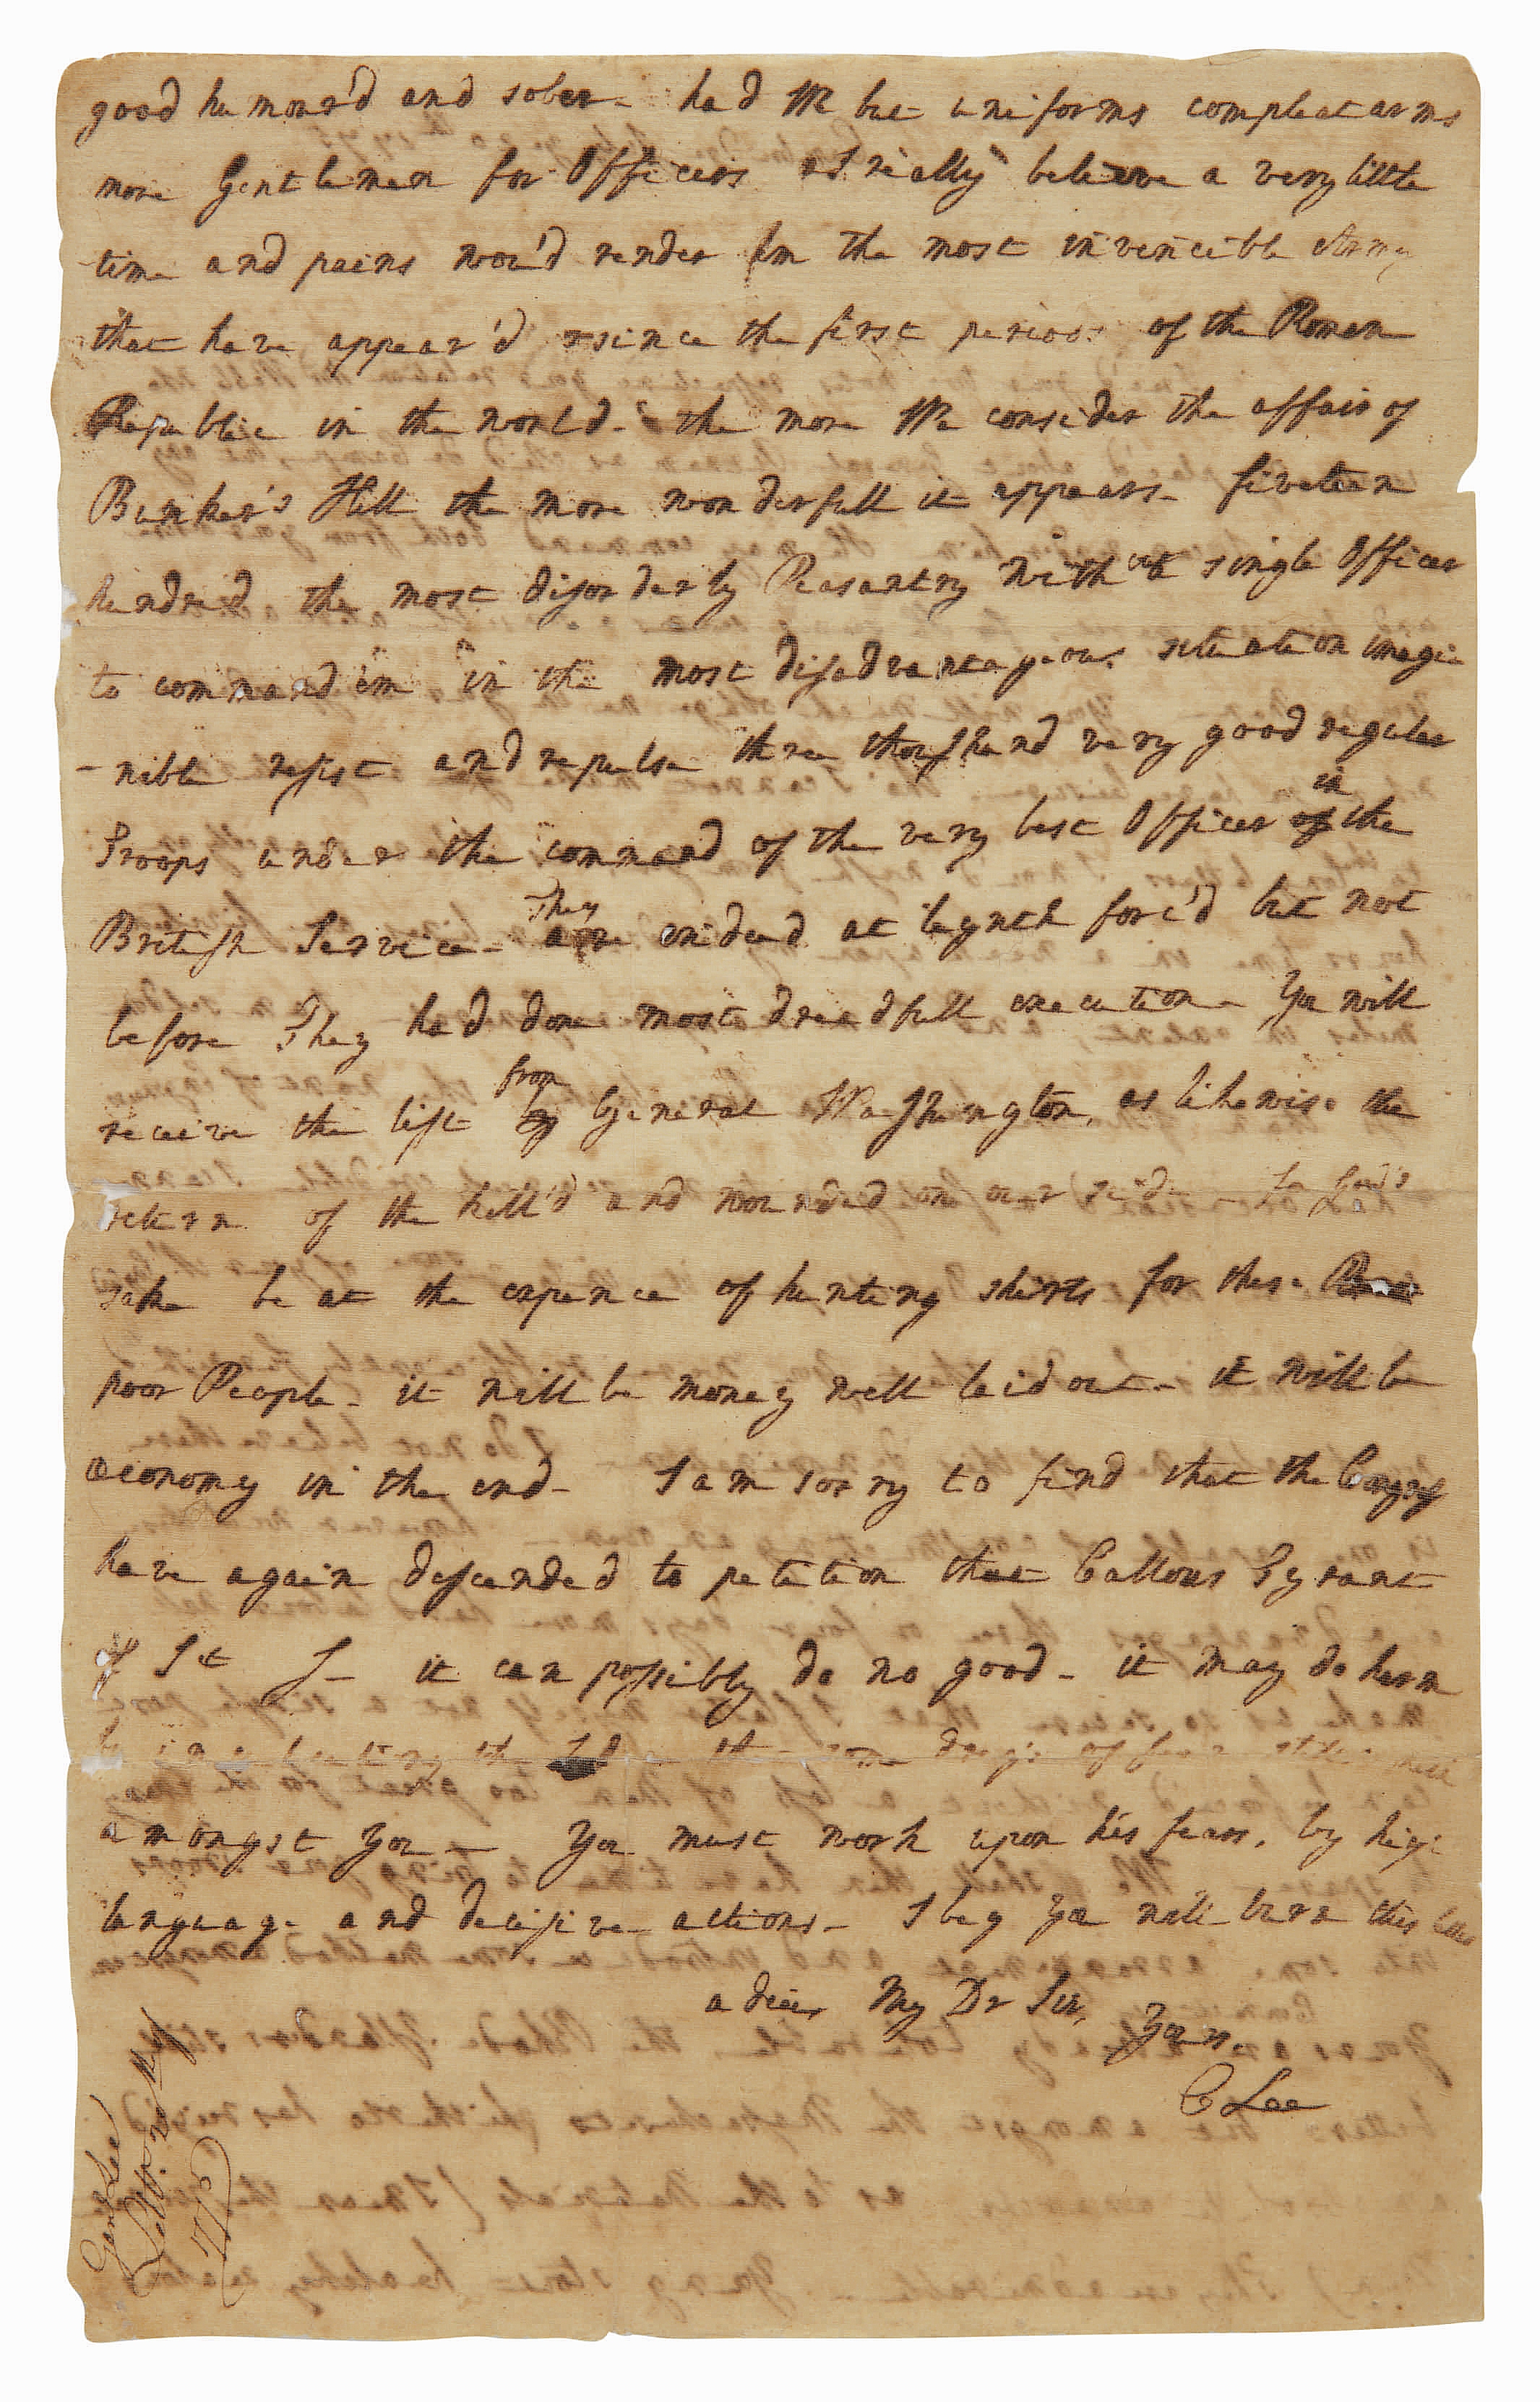 good humour'd and sober - had We but uniforms compleat arms
more Gentlemen for Officers I really believe a very little
time and pains wou'd render 'em the most invincible Army
that have appear'd since the first period of the Roman
Republic in the world - the more We consider the affair of
Bunker's Hill the more wonderfull it appears - fiveteen
hundred the most disorderly Peasantry without single Officer
to command 'em in the most disadvantageous situation imagi
-nible resist and repulse three thousand very good regular
Troops under the command of the very best Officer in the
British Service - They are indeed at length forc'd but not
before They had done most dreadfull execution - You will
receive the list from General Washington, as likewise the
return of the kill'd and wounded on our side - for God's
sake be at the expence of hunting shirts for these
poor People - it will be money well laid out - it will be
œconomy in the end - I am sorry to find that the Congress
have again descended to petition that Callous Tyrant
of St J - it can possibly do no good - it may do harm
by the some dregs of fear still
amongst You - You must work upon his fears, by high
language and decisive actions - I beg You will burn this
adieu My Dr Sir,
Yours
C Lee
Gen Lee
1775